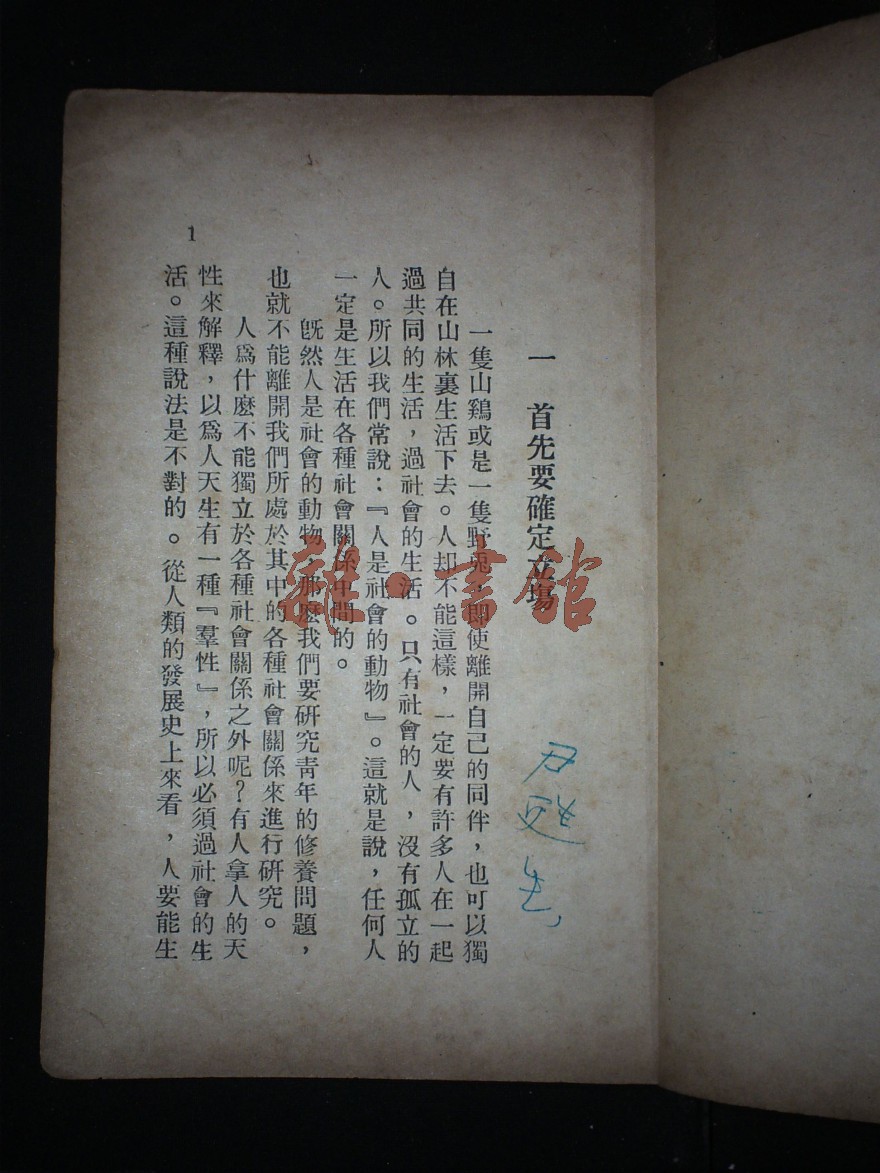 一 首先要確定立塲
一隻山鷄或是一隻野兎，即使離開自己的同伴，也可以獨
自在山林裏生活下去。人却不能這樣，一定要有許多人在一起
過共同的生活，過社會的生活。只有社會的人，沒有孤立的
人。所以我們常說：『人是社會的動物』。這就是說，任何人
一定是生活在各種社會關係中間的。
旣然人是社會的動物，那麽我們要硏究靑年的修養問題，
也就不能離開我們所處於其中的各種社會關係來進行硏究。
人爲什麽不能獨立於各種社會關係之外呢？有人拿人的天
性來解釋，以爲人天生有一種『羣性』，所以必須過社會的生
活。這種說法是不對的。從人類的發展史上來看，人要能生
1
雜·書館